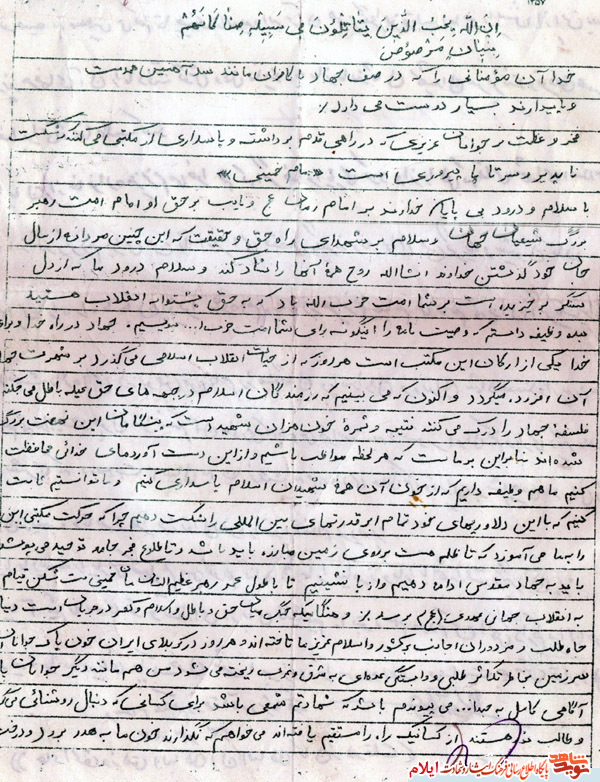 ۱۳۵۷
ان الله یحب الذین یقاتلون فی سبیله صفا کانهم
بنیان مرصوص
خدا آن مؤمنانی را که در صف جهاد با کافران مانند سد آهنین همدست
و پایدارند بسیار دوست می دارد
فخر و عظمت بر جوانان عزیزی که در راهی قدم برداشته و پاسداری از مکتبی می کنند که شکست
ناپذیر و سرتاپا پیروزی است «امام خمینی»
با سلام و درود بی پایان خداوند بر امام زمان عج و نایب بر حق او امام امت رهبر
بزرگ شیعیان جهان و سلام بر شهدای راه حق و حقیقت که این چنین مردانه از مال
جان خود گذشتن خداوند انشاالله روح همهٔ آنها را شاد کند و سلام درود ما که از دل
سنگر برخیزیده است بر شما امت حزب الله باد که به حق پشتوانه انقلاب هستید
بنده وظیفه دانستم که وصیت نامه را اینگونه برای شما امت حزب ا... بنویسم. جهاد در راه خدا و برای
خدا یکی از ارکان این مکتب است هر روز که از حیات انقلاب اسلامی می گذرد بر شهرت
آن افزوده میگردد و اکنون که می بینیم که رزمندگان اسلام در جبهه های حق علیه باطل می جنگند
فلسفه جهاد را درک می کنند نتیجه و ثمرهٔ خون هزاران شهید است که این نهضت بزرگ
شده اند بنابراین بر ماست که هر لحظه مواظب باشیم و از این دست آوردهای خدائی محافظت
کنیم ما هم وظیفه داریم که از خون آن همهٔ شهیدان اسلام پاسداری کنیم و ما توانستیم ثابت
کنیم که با این دلاوریهای خود تمام ابرقدرتهای بین المللی را شکست دهیم چرا که حرکت مکتبی این
را به ما می آموزد که تا ظلم هست بر روی زمین مبارزه باید باشد و تا طلوع فجر جامه توحید می پوشد
باید به جهاد مقدس ادامه دهیم و از پا ننشینیم تا با طول عمر رهبر عظیم الشان مان خمینی بت شکن قیام
به انقلاب جهانی مهدی (عج) برسد و هنگامیکه جنگ میان حق و باطل و اسلام و کفر در جریان است
جاه طلب و مزدوران اجانب بر کشور و اسلام عزیز ما تاخته اند و هر روز در کربلای ایران خون پاک جوانان
سرزمین بخاطر تکاثر طلبی و وابستگی عده ای به شرق و غرب ریخت می شود من هم مانند دیگر جوانان با
آگاهی کامل به میدان... می پیوندم باشد که شهادتم شمعی باشد برای کسانی که دنبال روشنائی می
و طالب هستند از کسانیکه راه را مستقیم یافته اند می خواهم که نگذارند خون ما به هدر برود و درخت
نوید شاهد
پایگاه اطلاع رسانی فرهنگ ایثار و شهادت ایلام